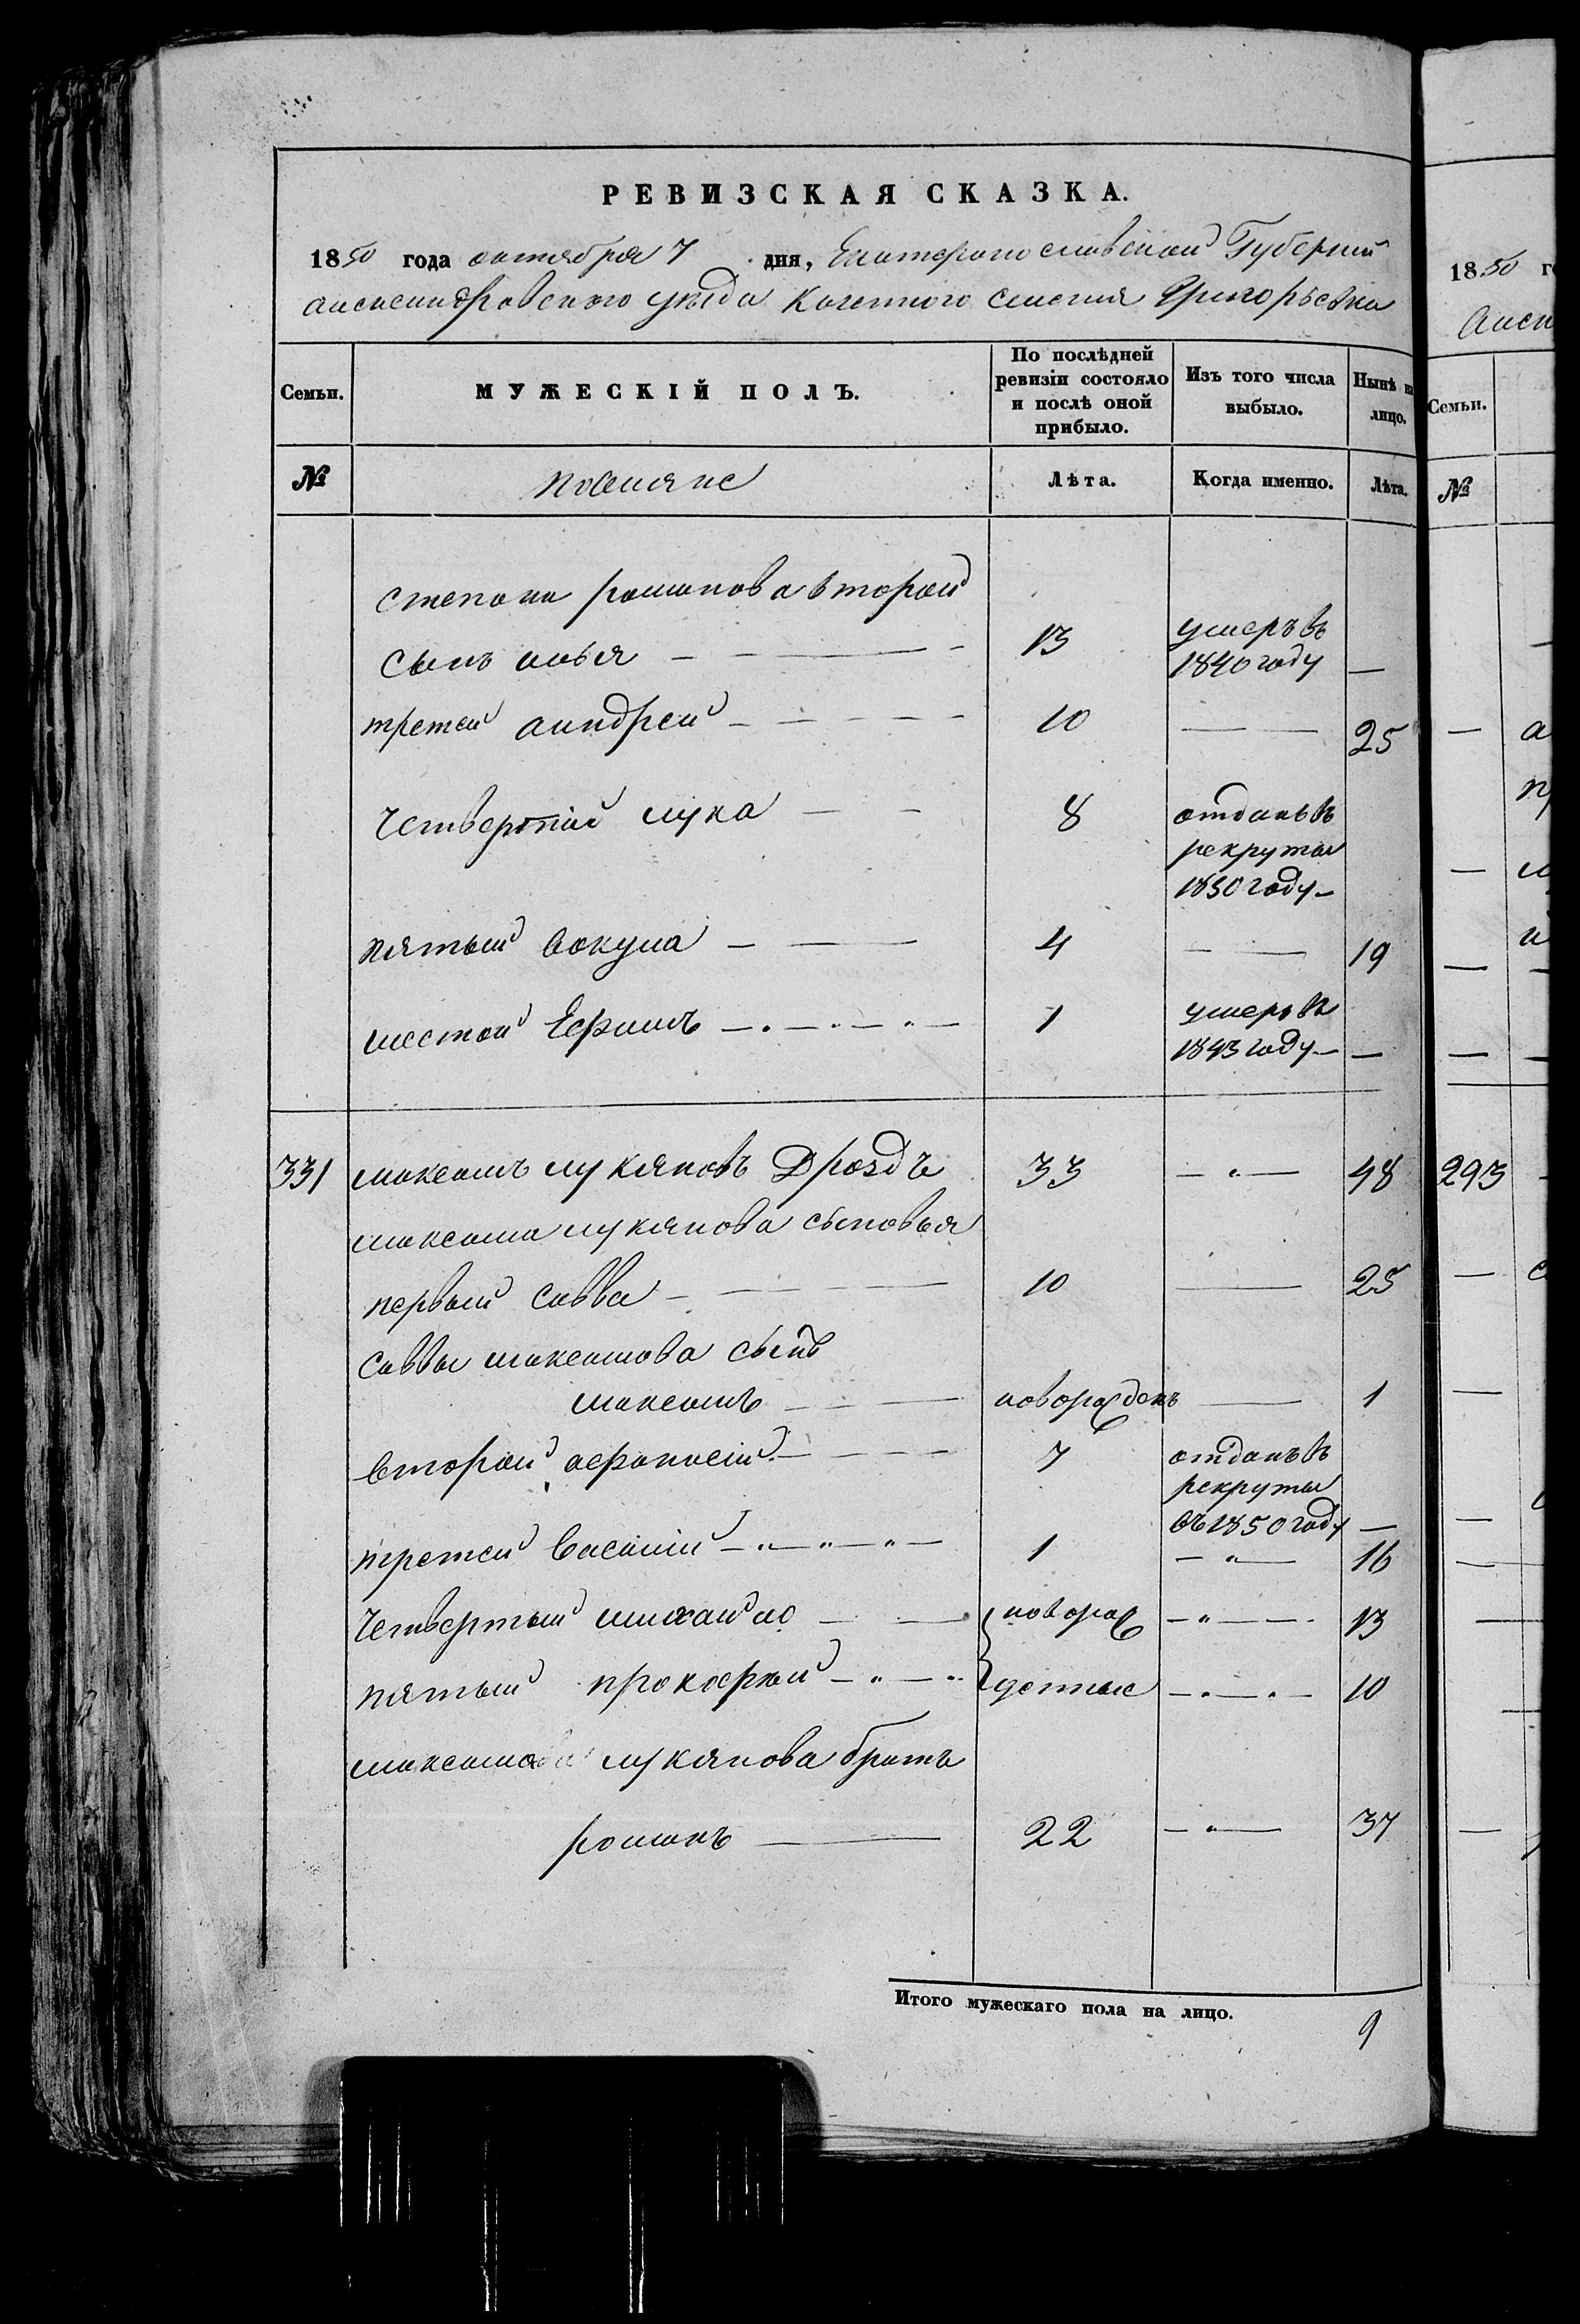 РЕВИЗСКАЯ СКАЗКА.
1850 года октября 7 дня, Екатеринославской Губернии
александровского уезда Казенного селения Григорьевка
Семьи. МУЖЕСКІЙ ПОЛЪ. По послѣдней ревизіи состояло и послѣ оной прибыло. Изъ того числа выбыло. Нынѣ на лицо.
№ поселяне Лѣта. Когда именно. Лѣта.
степана романова второй
сынъ илья 13 умеръ въ 1840 году —
третей андрей 10 — 25
Четвертый лука 8 отданъ въ рекруты 1850 году
пятый вакула 4 — 19
шестой Ефимъ 1 умеръ въ 1843 году —
331 максимъ лукяновъ Дроздъ 33 — 48
максима лукянова сыновья
первый савва 10 — 25
саввы максимова сынъ
максимъ новорожденъ — 1
второй афанасій 7 отданъ въ рекруты въ 1850 году —
третей василій 1 — 16
Четвертый михайло новорож — 13
пятый прокофий денные — 10
максима лукянова братъ
романъ 22 — 37
Итого мужескаго пола на лицо. 9
1850
Семьи.
№
293